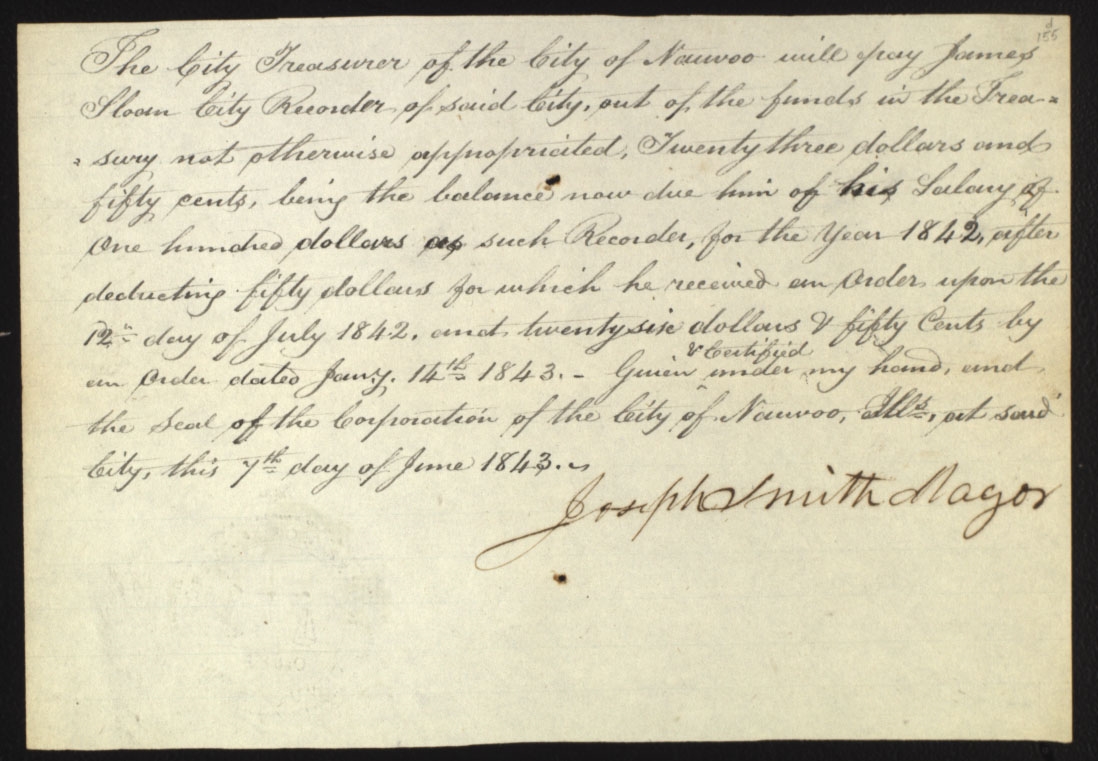 d
155
The City Treasurer of the City of Nauvoo will pay James
Sloan City Recorder of said City, out of the funds in the Trea=
=sury not otherwise appropriated, Twenty three dollars and
fifty cents, being the balance now due him of his Salary of
One hundred dollars as such Recorder, for the Year 1842, after
deducting fifty dollars for which he received an Order upon the
12th day of July 1842, and twenty six dollars & fifty Cents by
an Order dated Jany. 14th 1843.- Given & Certified under my hand, and
the Seal of the Corporation of the City of Nauvoo, Ills, at said
City, this 7th day of June 1843.~
Joseph Smith Mayor